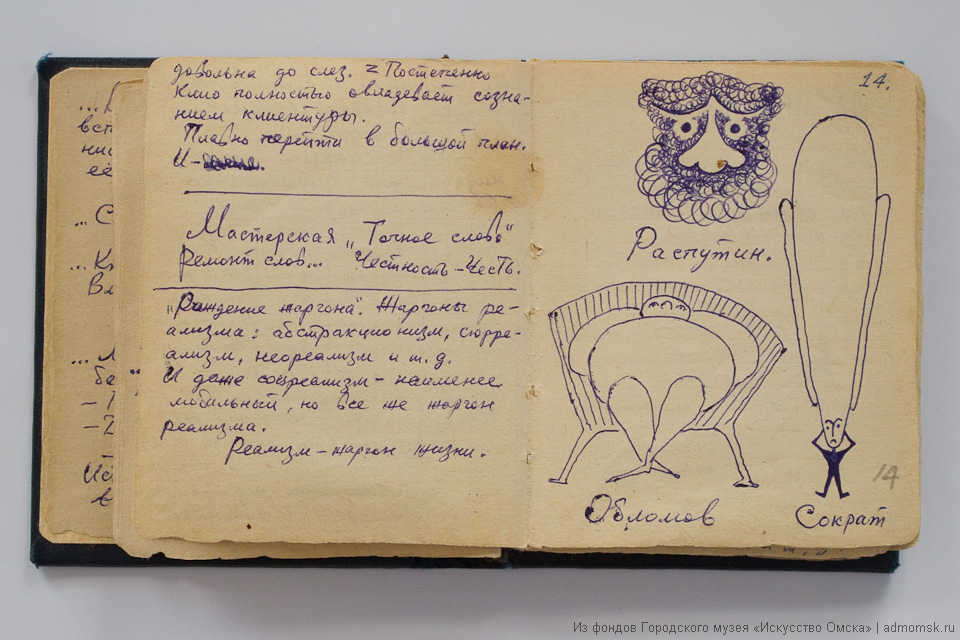 довольна до слез. = Постепенно
Клио полностью овладевает созна-
нием клиентуры.
Плавно перейти в большой план.
И –
Мастерская „Точное слово“
Ремонт слов... Честность – Честь.
„Рождение жаргона“. Жаргоны ре-
ализма: абстракционизм, сюрре-
ализм, неореализм и т.д.
И даже соцреализм – наименее
мобильный, но все же жаргон
реализма.
Реализм – жаргон жизни.
14.
Распутин.
Обломов
Сократ
14
Из фондов Городского музея «Искусство Омска» | admomsk.ru